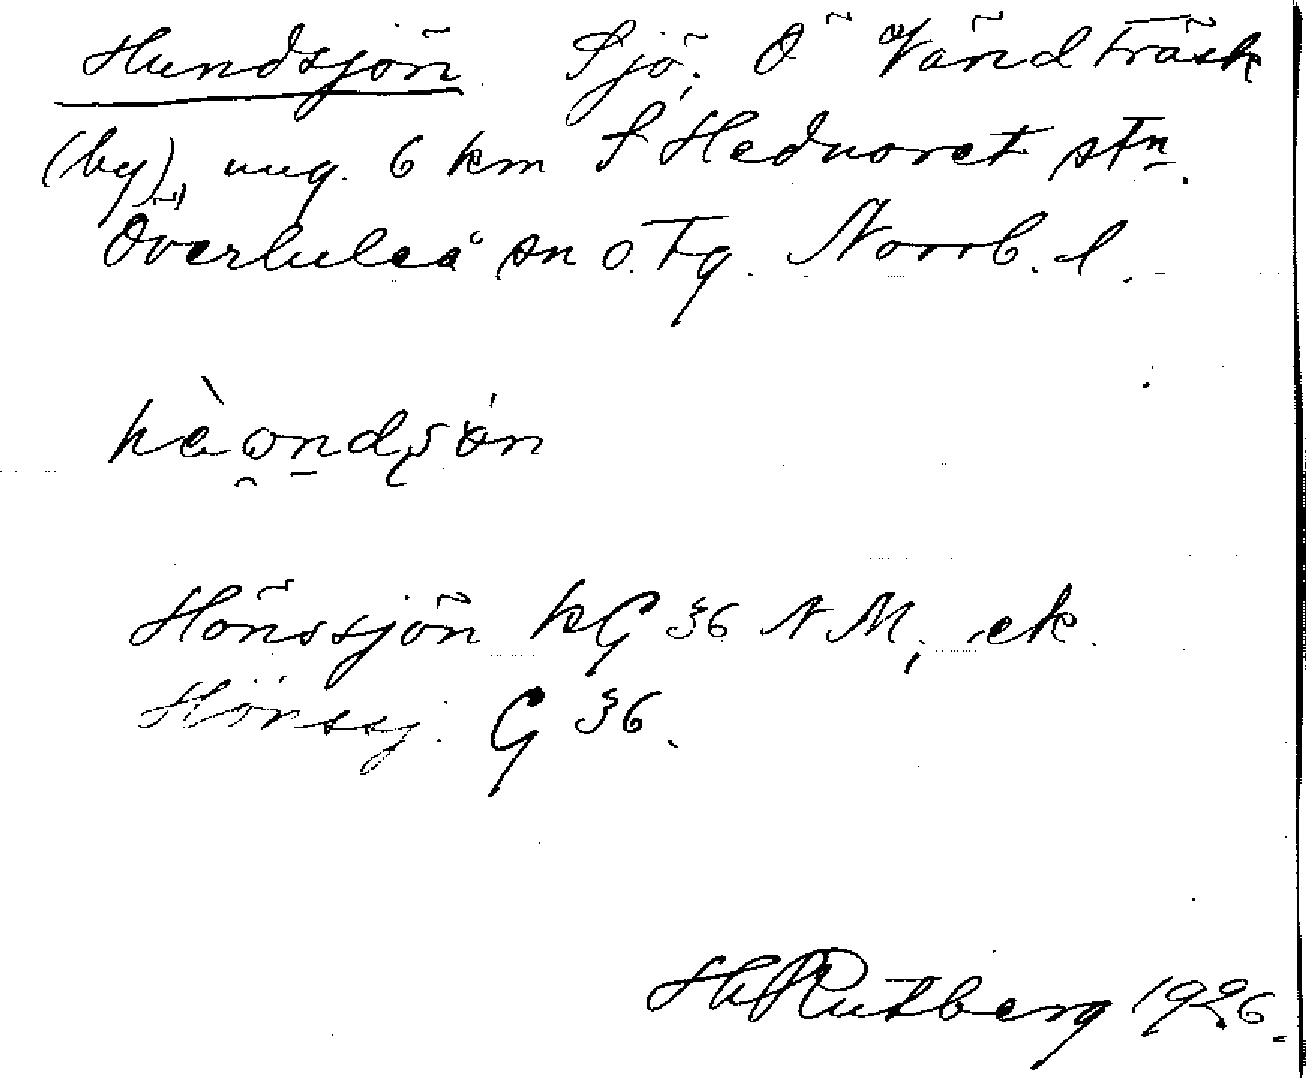 Hundsjön Sjö, Ö Vändträsk
(by), ung. 6 km S Hednoret stn.
Överluleå sn o. tg. Norrb. l.
Hönssjön kG 36 NM, ek
Hönssj. G 36.
HRutberg 1926.